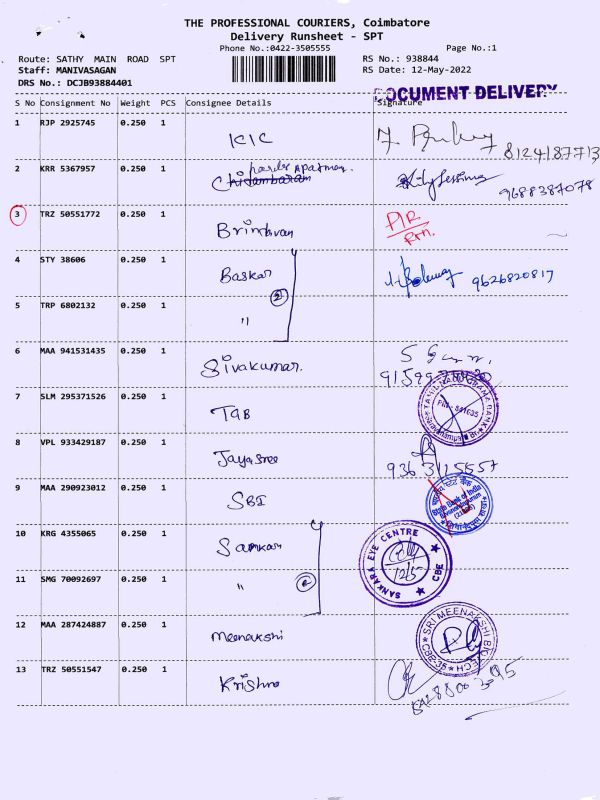 THE PROFESSIONAL COURIERS, Coimbatore
Delivery Runsheet - SPT
Phone No.:0422-3505555
Page No.:1
Route: SATHY MAIN ROAD SPT
RS No.: 938844
Staff: MANIVASAGAN
RS Date: 12-May-2022
DRS No.: DCJB93884401
DOCUMENT DELIVERY
S No Consignment No Weight PCS Consignee Details Signature
1 RJP 2925745 0.250 1 KIC
8124187713
2 KRR 5367957 0.250 1
Chidambaram
9688387078
3 TRZ 50551772 0.250 1 Brindavan
Rtn.
4 STY 38606 0.250 1 Baskar 9626820817
2
5 TRP 6802132 0.250 1 "
6 MAA 941531435 0.250 1 Sivakumar.
7 SLM 295371526 0.250 1 TGB
TAMIL NADU GRAMA BANK
8 VPL 933429187 0.250 1 Jayasree
9363125557
9 MAA 290923012 0.250 1 SBI
State Bank of India
10 KRG 4355065 0.250 1 Sankara
SANKARA EYE CENTRE
CBE
12/5
11 SMG 70092697 0.250 1 "
12 MAA 287424887 0.250 1 Meenakshi
SRI MEENAKSHI BIO TECH
CBE-35
13 TRZ 50551547 0.250 1 Krishna